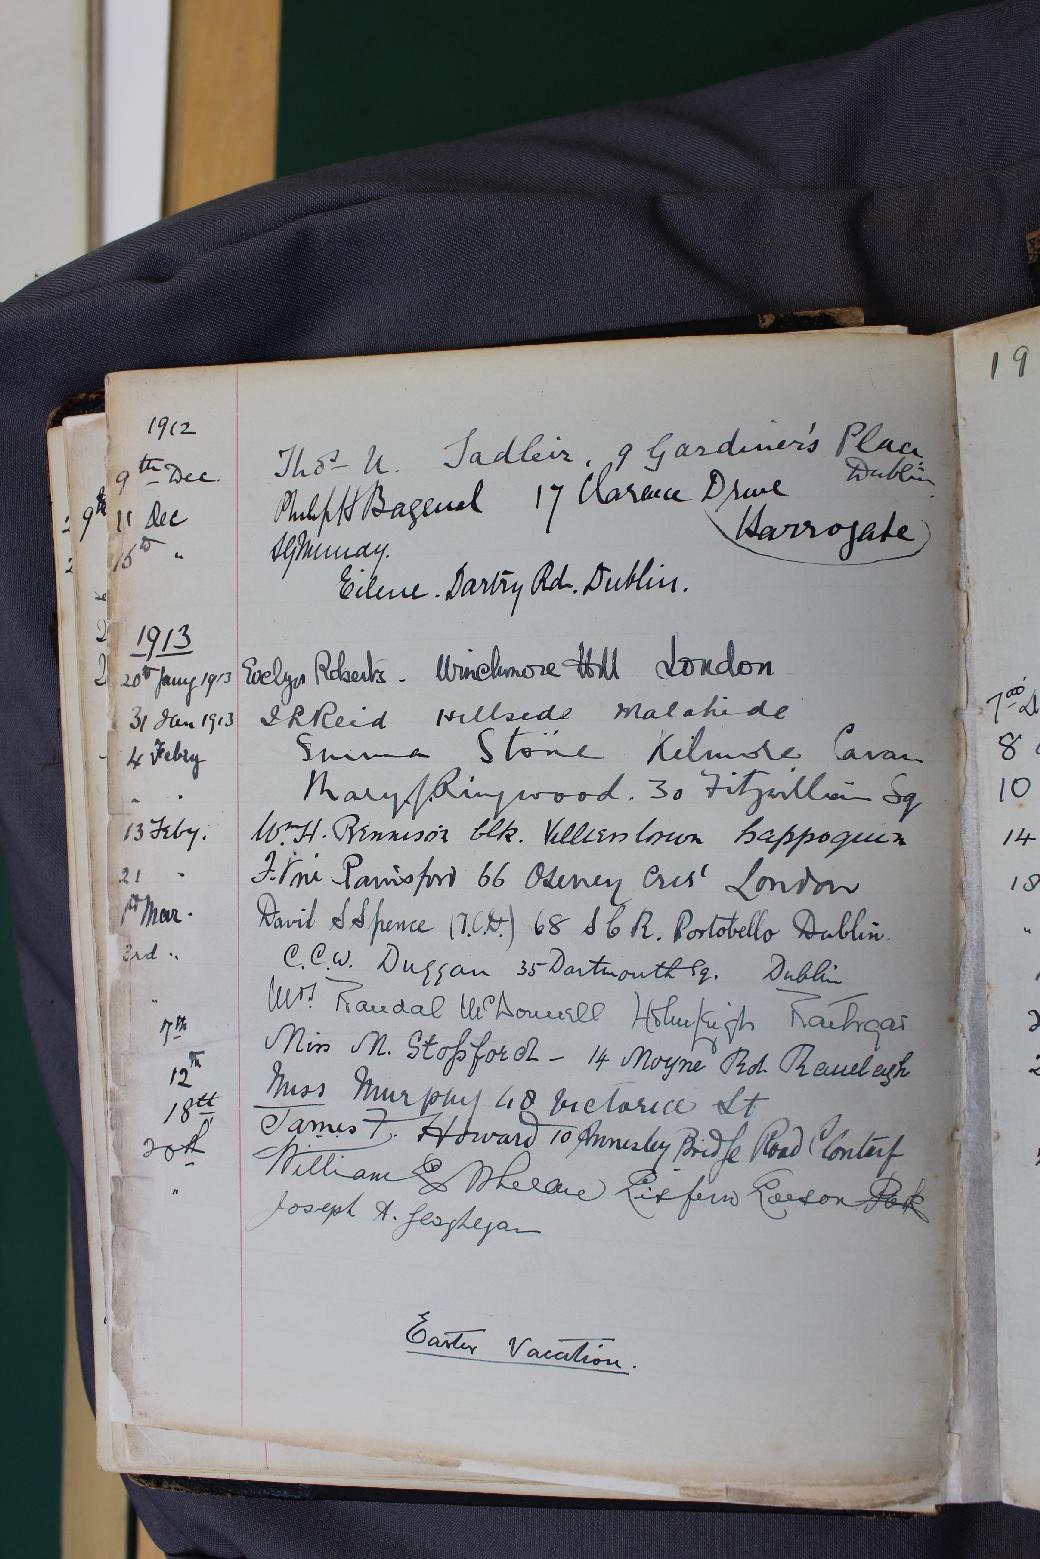 1912
9th Dec. Thos U. Sadleir, 9 Gardiner's Place Dublin
11 Dec Philip H Bagenal 17 Clarence Drive Harrogate
15th " Mundy.
Eilene. Dartry Rd. Dublin.
1913
20th Jany 1913 Evelyn Roberts. Winchmore Hill London
31 Jan 1913 Reid Hillside Malahide
4 Febry Emma Stone Kilmore Cavan
" " Mary J. Ringwood. 30 Fitzwilliam Sq
13 Feby. Wm H. Rennison Clk. Villierstown Cappoquin
21 " Rainsford 66 Oseney Cres' London
1st Mar. David S Spence (T.C.D.) 68 S C R. Portobello Dublin.
3rd " C.C.W. Duggan 35 Dartmouth Sq. Dublin
" Mrs Randal McDonnell Rathgar
7th Miss M. Stopford - 14 Moyne Rd. Ranelagh
12th Miss Murphy 48 Victoria St
18th James F. Howard 10 Annesley Bridge Road Clontarf
20th William Lisfern Eaeson Park
" Joseph A. Geoghegan
Easter Vacation.
19
8
10
14
18